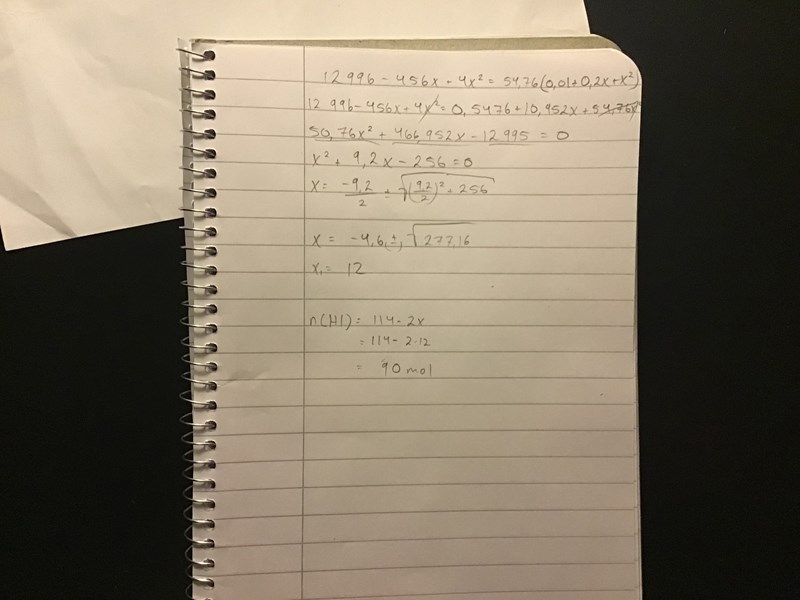 12 996 - 456x + 4x² = 54,76(0,01+0,2x+x²)
12 996 - 456x + 4x² = 0,5476 + 10,952x + 54,76x²
50,76x² + 466,952x - 12 995 = 0
x² + 9,2x - 256 = 0
x = -9,2/2 ± √(9,2/2)² + 256
x = -4,6 (±) √277,16
x₁ = 12
n(HI) = 114 - 2x
= 114 - 2·12
= 90 mol